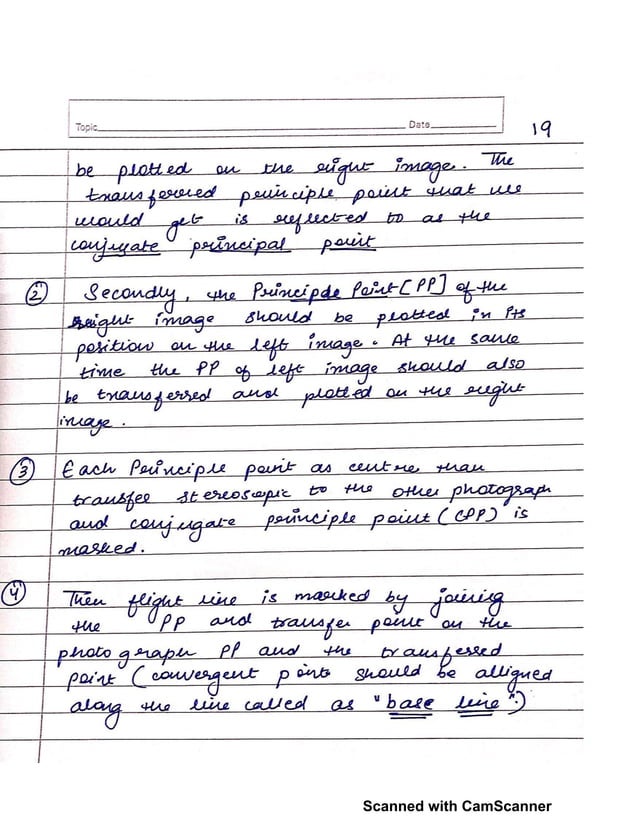 Topic Date 19
be plotted on the right image. The
transferred principle point that we
would get is reflected to as the
conjugate principal point
② Secondly, the Principle Point [PP] of the
right image should be plotted in its
position on the left image. At the same
time the PP of left image should also
be transferred and plotted on the right
image.
③ Each Principle point as centre than
transfer stereoscopic to the other photograph
and conjugate principle point (CPP) is
marked.
④ Then flight line is marked by joining
the PP and transfer point on the
photographer PP and the transfessed
point (convergent points should be alligned
along the line called as "base line".)
Scanned with CamScanner